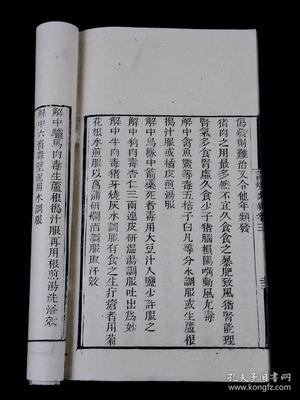 傷發則難治又令他年類發
猪肉之用最多然不宜久食食之暴肥致風猪腎能理
腎氣多食腎虛久食少子猪腦損陽嘴動風尤毒
解中禽魚鱉等毒五桔子白凡等分水調服或生蘆根
搗汁服或橘皮煎湯服
解中馬豚中箭藥死者毒用大豆汁人鹽少許服之
解中狗肉毒杏仁三兩連皮研細湯調服吐出為妙
解中牛肉毒猪牙燒灰水調服有食之生疔瘡者用菊
花根水煎服以菖蒲研爛酒調服取汗效
解中驢馬肉毒生蘆根搗汁服再用根煎湯洗浴效
解中六畜毒壁泥用水調服
孔夫子旧书网